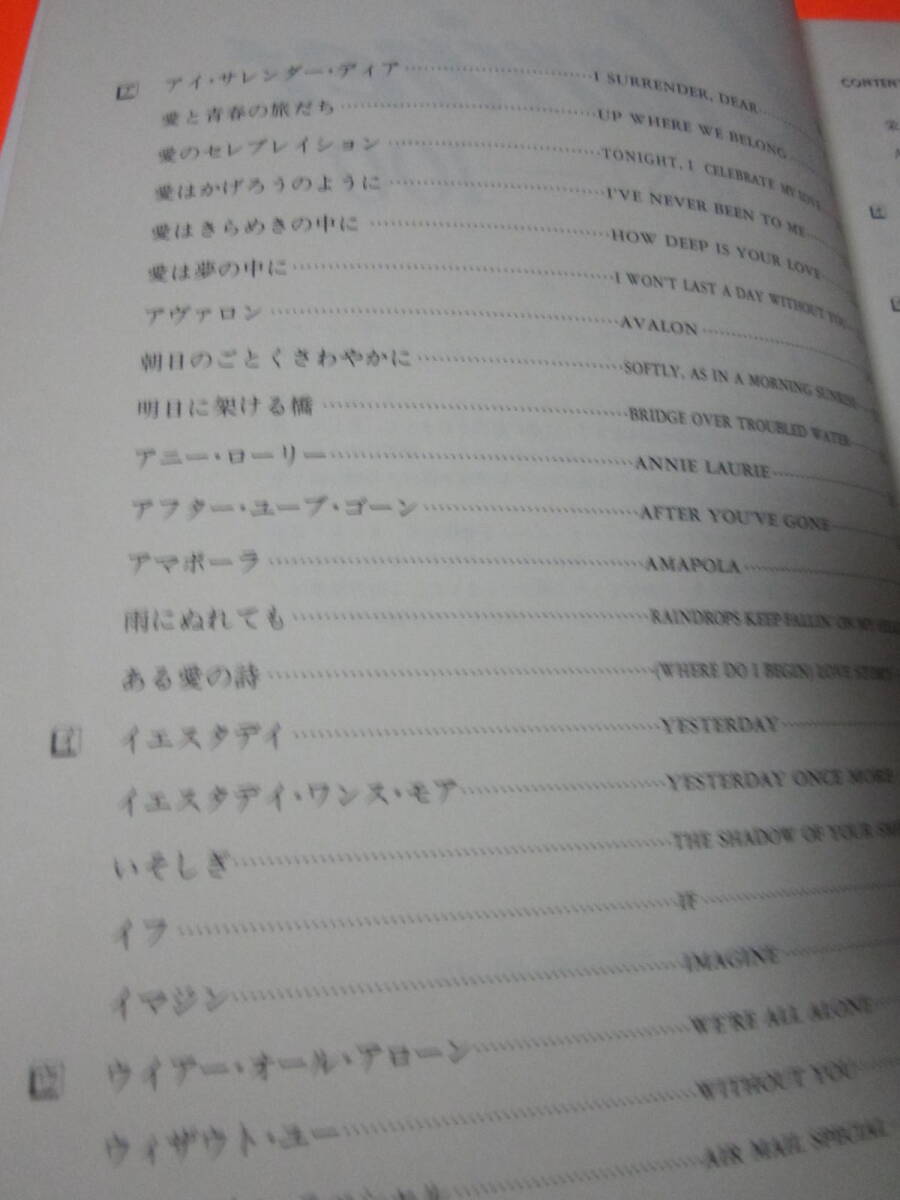 ア アイ・サレンダー・ディア……I SURRENDER, DEAR
愛と青春の旅だち……UP WHERE WE BELONG
愛のセレブレイション……TONIGHT, I CELEBRATE MY LOVE
愛はかげろうのように……I'VE NEVER BEEN TO ME
愛はきらめきの中に……HOW DEEP IS YOUR LOVE
愛は夢の中に……I WON'T LAST A DAY WITHOUT YOU
アヴァロン……AVALON
朝日のごとくさわやかに……SOFTLY, AS IN A MORNING SUNRISE
明日に架ける橋……BRIDGE OVER TROUBLED WATER
アニー・ローリー……ANNIE LAURIE
アフター・ユーブ・ゴーン……AFTER YOU'VE GONE
アマポーラ……AMAPOLA
雨にぬれても……RAINDROPS KEEP FALLIN' ON MY
ある愛の詩……(WHERE DO I BEGIN) LOVE STORY
イ イエスタデイ……YESTERDAY
イエスタデイ・ワンス・モア……YESTERDAY ONCE MORE
いそしぎ……THE SHADOW OF YOUR
イフ……IF
イマジン……IMAGINE
ウ ウイアー・オール・アローン……WE'RE ALL ALONE
ウィザウト・ユー……WITHOUT YOU
AIR MAIL SPECIAL
CONTENT